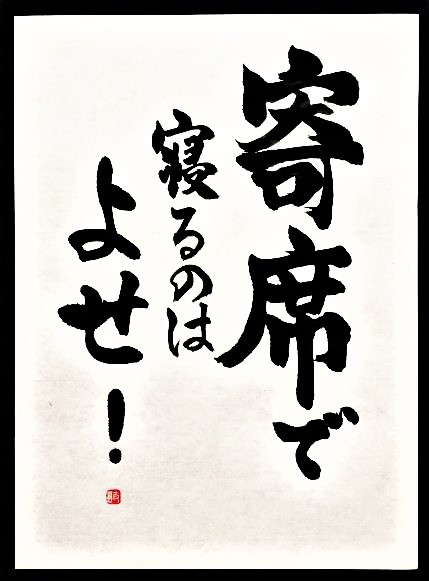 寄席で
寝るのは
よせ！